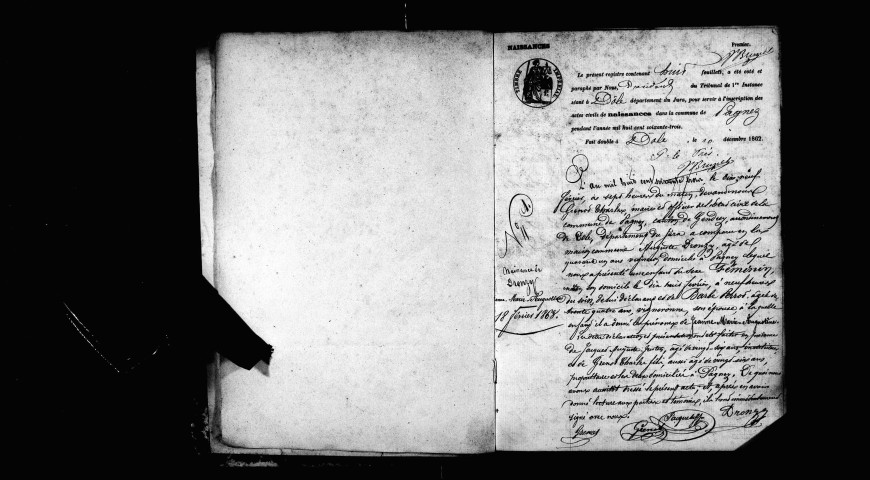 NAISSANCES
Premier.
TIMBRE IMPERIAL
Le présent registre contenant trois feuillets, a été coté et
paraphé par Nous, Président du Tribunal de 1re Instance
séant à Dôle département du Jura, pour servir à l'inscription des
actes civils de naissances dans la commune de Pagney
pendant l'année mil huit cent soixante-trois.
Fait double à Dole le décembre 1862.
L'an mil huit cent soixante trois, le dix neuf
février, à sept heures du matin, devant nous
Grenot Charles, maire et officier de l'état civil de la
commune de Pagney, canton de Gendrey, arrondissement
de Dôle, département du Jura a comparu en la
maison commune Auguste Dronzy, âgé de
quarante un ans vigneron domicilié à Pagney lequel
nous a présenté un enfant du sexe Féminin,
né en son domicile le dix huit février, à neuf heures
du soir, de lui déclarant et de Barbe âgée de
trente quatre ans, vigneronne, son épouse, à laquelle
enfant il a donné les prénoms de Jeanne Marie
les dites déclaration et présentation faites en présence
de Jacques Auguste âgé de vingt six ans
et de Grenot Charles fils, aussi âgé de vingt six ans,
propriétaire et les deux domiciliés à Pagney, De quoi nous
avons aussitôt dressé le présent acte, et, après en avoir
donné lecture aux parties et témoins, ils l'ont
signé avec nous.
Grenot Grenot Dronzy
N° 1
Naissance de
Dronzy
Marie
18 février 1863.